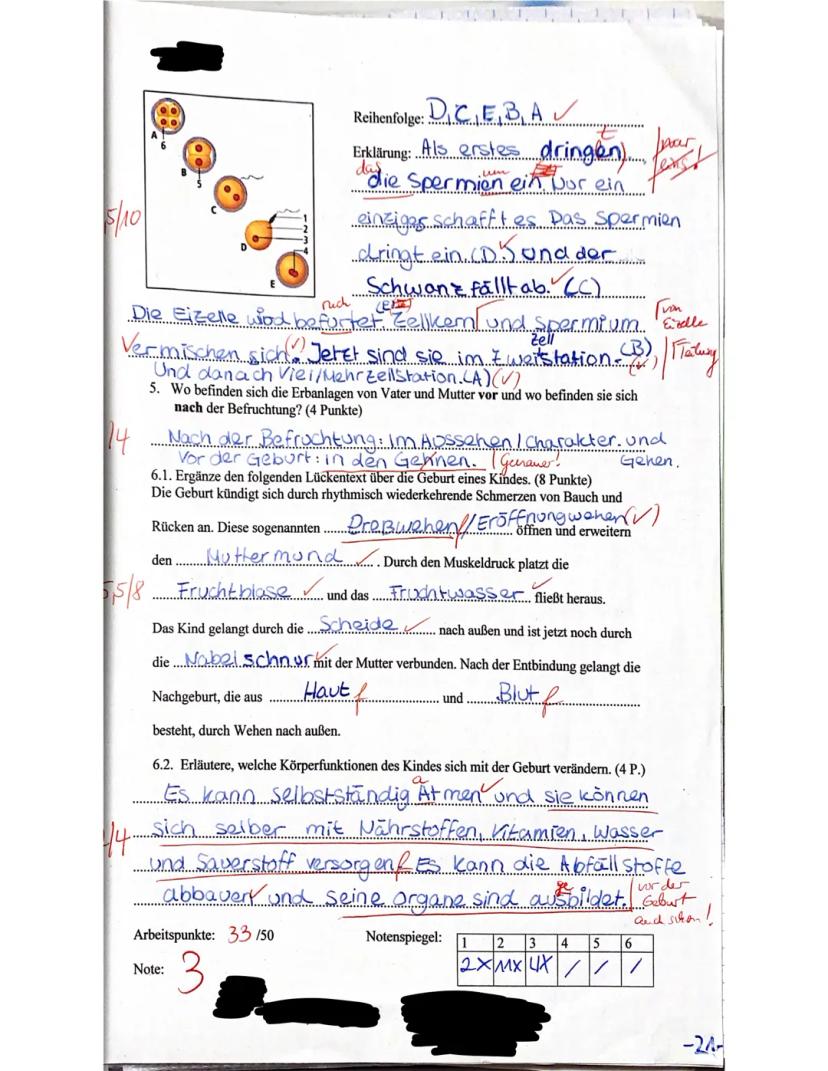 Reihenfolge: D,C,E,B,A ✓
Erklärung: Als erstes dringen t
paar eins!
das
die Spermien ein. Nur ein
einziger schafft es Das Spermien
5/10
dringt ein. (D.) ✓ und der
Schwanz fällt ab. ✓ (C)
A
6
B
5
C
D
1
2
3
4
E
Die Eizelle wird befurtet. Zellkern und spermium von Eizelle
ruch
Vermischen sich (✓). Jetzt sind sie im Zweizellstation. (B) (✓) Teilung
Und danach Vier/Mehrzellstation.(A) (✓)
5. Wo befinden sich die Erbanlagen von Vater und Mutter vor und wo befinden sie sich
nach der Befruchtung? (4 Punkte)
/4
Nach der Befruchtung: Im Aussehen / Charakter. und
Vor der Geburt: in den Gehnen. Genauer! Gehen.
6.1. Ergänze den folgenden Lückentext über die Geburt eines Kindes. (8 Punkte)
Die Geburt kündigt sich durch rhythmisch wiederkehrende Schmerzen von Bauch und
Rücken an. Diese sogenannten Preßwehen f/Eröffnungwehen (✓) öffnen und erweitern
den Muttermund ✓. Durch den Muskeldruck platzt die
5,5/8
Fruchtblase ✓ und das Fruchtwasser ✓ fließt heraus.
Das Kind gelangt durch die Scheide ✓ nach außen und ist jetzt noch durch
die Nabelschnur ✓ mit der Mutter verbunden. Nach der Entbindung gelangt die
Nachgeburt, die aus Haut f und Blut f
besteht, durch Wehen nach außen.
6.2. Erläutere, welche Körperfunktionen des Kindes sich mit der Geburt verändern. (4 P.)
a
Es kann selbstständig Atmen ✓ und sie können
/4
sich selber mit Nährstoffen, Vitamien, Wasser
und Sauerstoff versorgen f Es kann die Abfallstoffe
abbauen ✓ und seine organe sind ausbildet.
ge
vor der Geburt auch schon!
Arbeitspunkte: 33 /50
Notenspiegel:
1 2 3 4 5 6
2X 11X 4X / / /
Note: 3
-21-